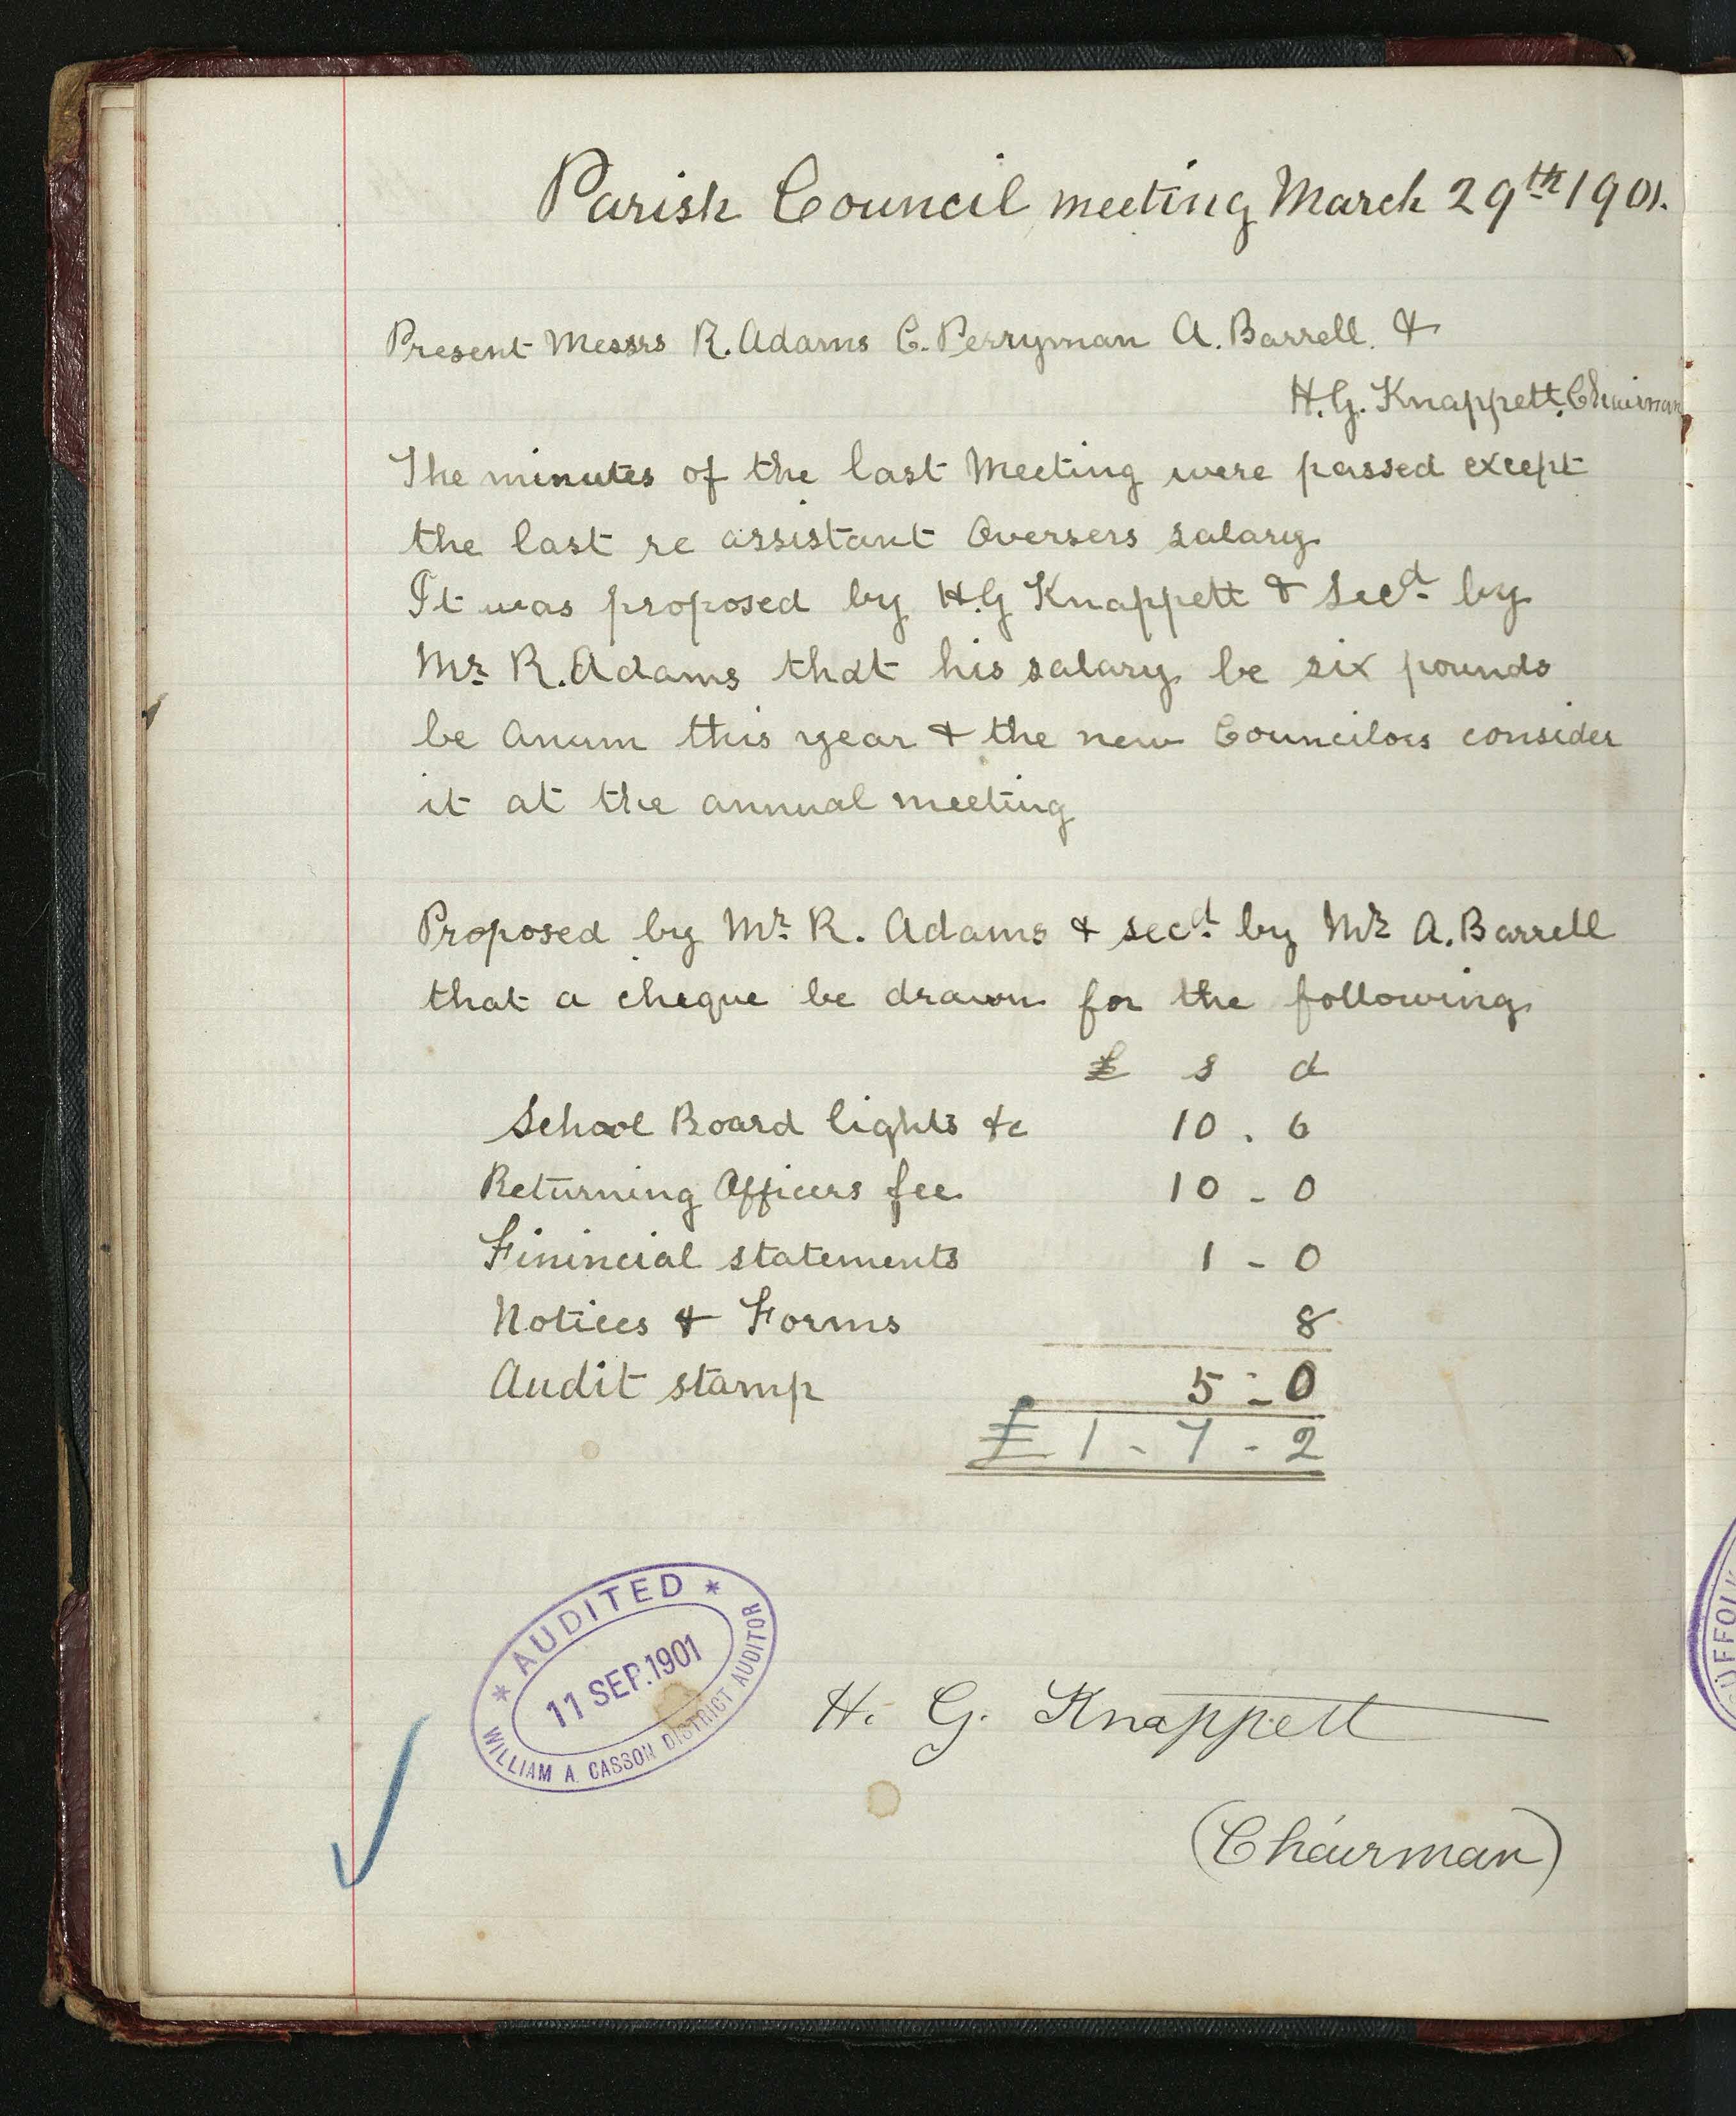 Parish Council meeting March 29th 1901.
Present Messrs R. Adams C. Perryman A. Barrell. &
H. G. Knappett. Chairman
The minutes of the last Meeting were passed except
the last re assistant Oversers salary
It was proposed by H.G Knappett & Secd by
Mr R. Adams that his salary be six pounds
be Anum this year & the new Councilors consider
it at the annual meeting
Proposed by Mr R. Adams & secd by Mr A. Barrell
that a cheque be drawn for the following
£ s d
School Board lights &c 10 . 6
Returning Officers fee 10 - 0
Finincial statements 1 - 0
Notices & Forms 8
Audit stamp 5 - 0
£ 1 - 7 - 2
* AUDITED *
11 SEP. 1901
WILLIAM A. CASSON DISTRICT AUDITOR
H. G. Knappett
(Chairman)